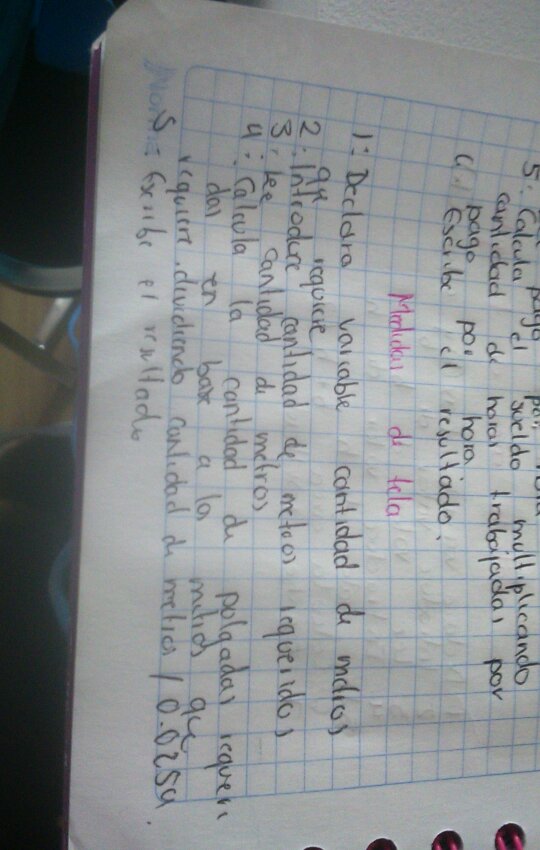 5: Calcula el sueldo multiplicando
cantidad de horas trabajadas por
pago por hora
6. Escribe el resultado.
Medidas de tela
1: Declara variable cantidad de metros
que requiere
2: Introduce cantidad de metros requeridos
3: Lee cantidad de metros
4: Calcula la cantidad de polgadas requeri
das en base a los metros que
requiere. dividiendo cantidad de metros / 0.0254.
5: Escribe el resultado